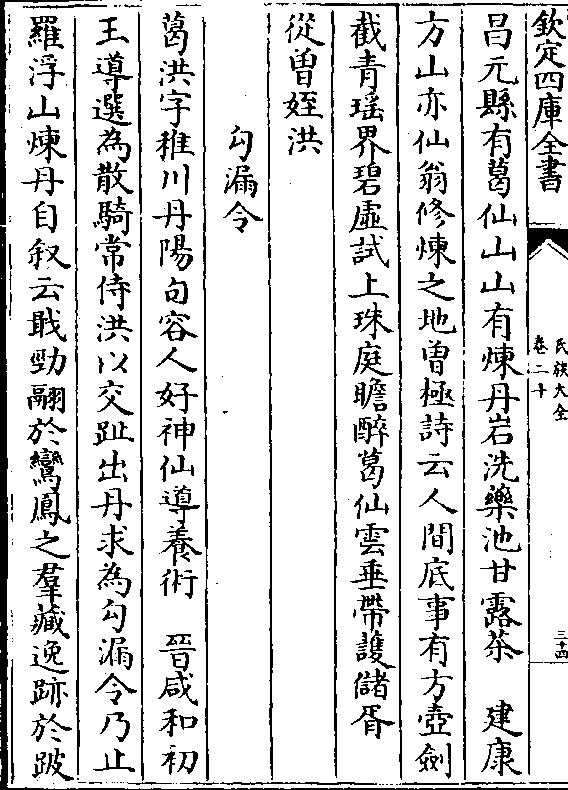 欽定四庫全書
氏族大全
卷二十
三十四
昌元縣有葛仙山山有煉丹岩洗藥池甘露茶　建康
方山亦仙翁修煉之地曽極詩云人間底事有方壺劍
截青瑶界碧虛試上珠庭瞻醉葛仙雲垂帶護儲胥
從曽姪洪
勾漏令
葛洪字稚川丹陽句容人好神仙導養術　晉咸和初
王導選為散騎常侍洪以交趾出丹求為勾漏令乃止
羅浮山煉丹自叙云戢勁翮於鸞鳳之羣藏逸跡於跛